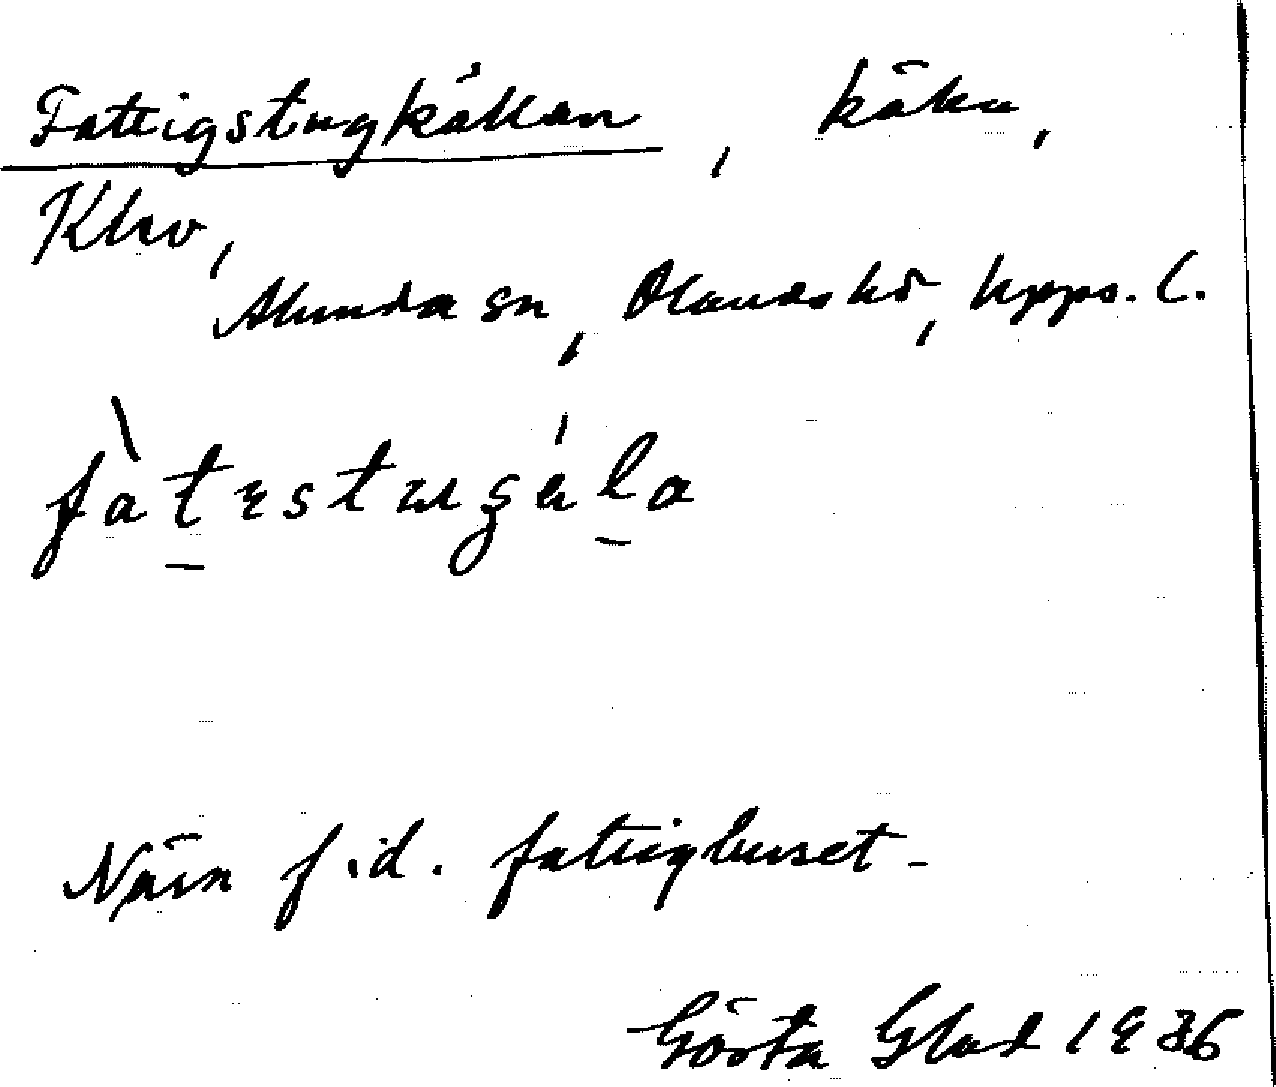 Fattigstugkällan, källa,
Klev,
Alunda sn, Olands hd, Upps. l.
fàtɛstugɛ́la
Nära f.d. fattighuset.
Gösta Glad 1936